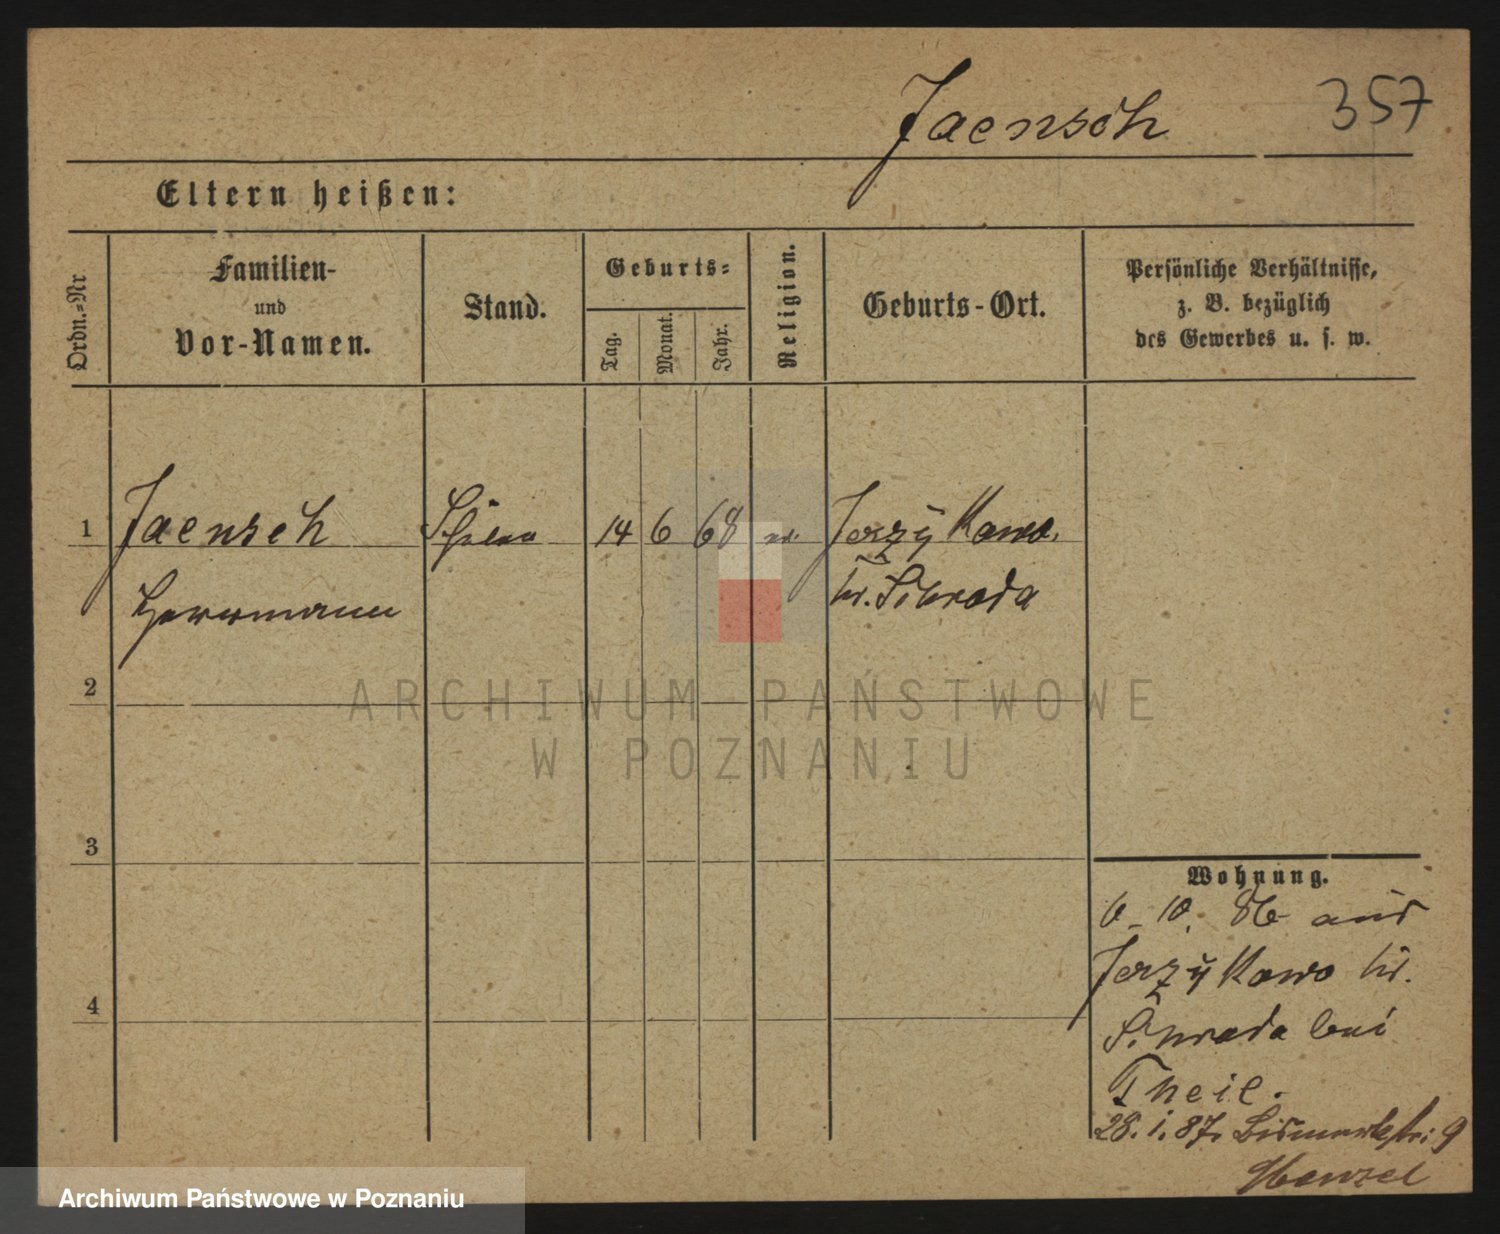 Jaensch 357
Eltern heißen:
Ordn.=Nr
Familien-
und
Vor-Namen.
Stand.
Geburts=
Tag.
Monat.
Jahr.
Religion.
Geburts-Ort.
Persönliche Verhältnisse,
z. B. bezüglich
des Gewerbes u. s. w.
1 Jaensch 14 6 68 ev. Jerzykowo,
Herrmann Kr. Schroda
2
ARCHIWUM PAŃSTWOWE
W POZNANIU
3
Wohnung.
6. 10. 86 aus
Jerzykowo Kr.
Schroda bei
4
Theil.
28. 1. 87. Bismarckstr: 9
Menzel
Archiwum Państwowe w Poznaniu